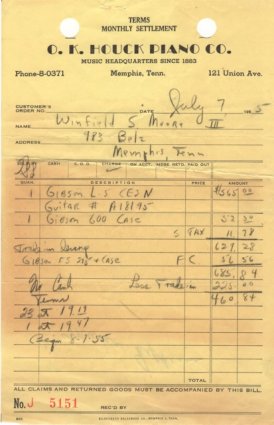 TERMS
MONTHLY SETTLEMENT
O. K. HOUCK PIANO CO.
MUSIC HEADQUARTERS SINCE 1883
Phone-8-0371 Memphis, Tenn. 121 Union Ave.
CUSTOMER'S
ORDER NO. DATE July 7 195 5
NAME Winfield S. Moore III
983 Belz
ADDRESS
Memphis Tenn
SOLD BY CASH C.O.D. CHARGE ON ACCT. MDSE. RETD. PAID OUT
QUAN. DESCRIPTION PRICE AMOUNT
1 Gibson L-5 CESN $565 00
Guitar # A18195
1 Gibson 600 Case 52 50
S TAX 11 78
Trade-in 629 28
Gibson ES + case F C 56 56
685 84
No Cash Less Trade-in 225 00
Terms 460 84
23 at 19.19
1 at 19 47
Begin 8-7-55
TOTAL
ALL CLAIMS AND RETURNED GOODS MUST BE ACCOMPANIED BY THIS BILL.
No. J 5151 REC'D BY